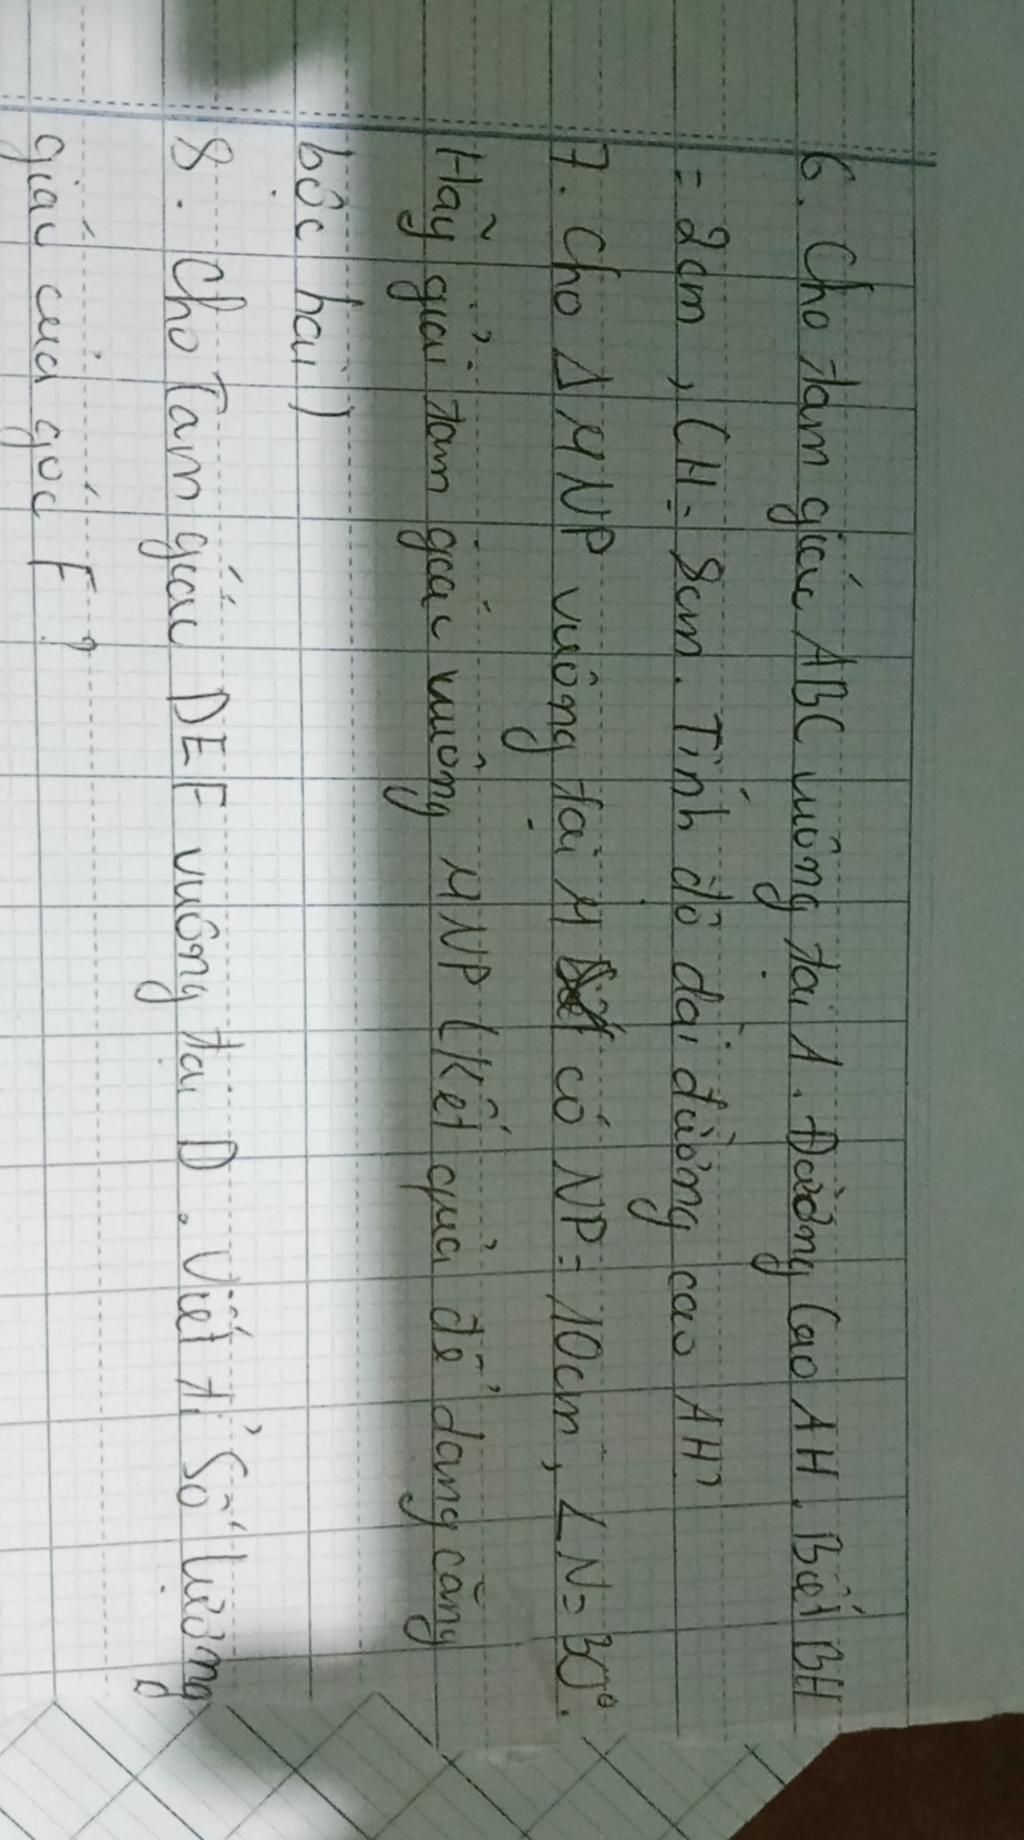 6. Cho tam giác ABC vuông tại A. Đường Cao AH. Biết BH
= 2cm, CH = 8cm. Tính độ dài đường cao AH?
7. Cho Δ MNP vuông tại M có NP = 10cm, ∠N = 30°.
Hãy giải tam giác vuông MNP (Kết quả để dạng căng
bậc hai)
8. Cho Tam giác DEF vuông tại D. Viết tỉ số lượng
giác của góc F?